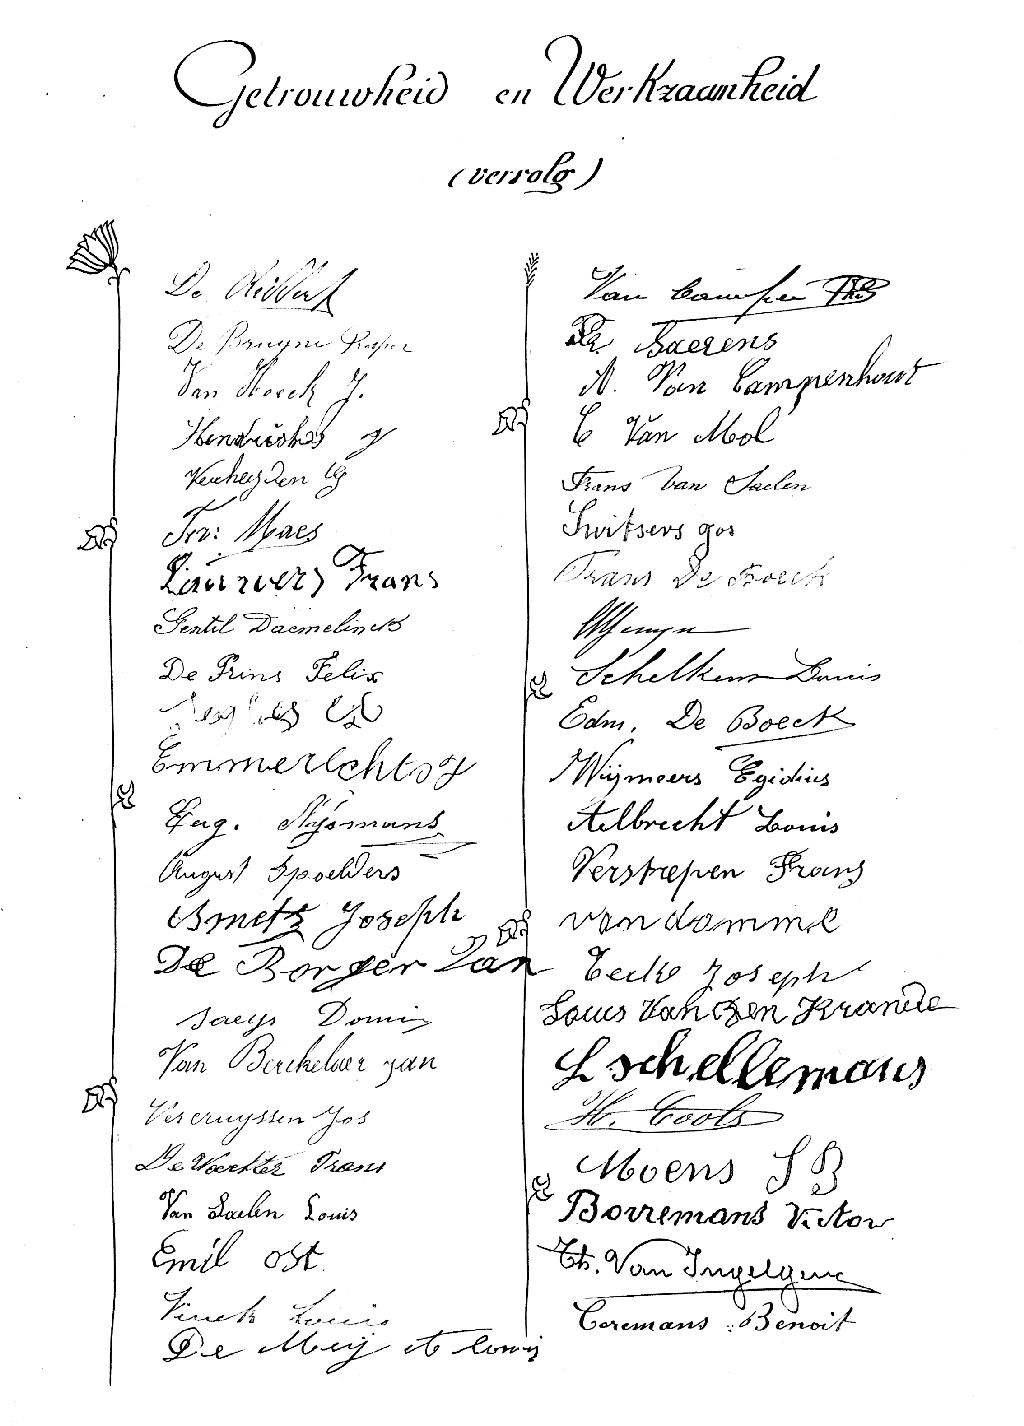 Getrouwheid en Werkzaamheid
(vervolg)
De Ridder
De Bruyne
Van Hoeck J.
Hendrickx J
Verheyden G
Frr: Maes
Lauwers Frans
Gentil Daemelinck
De Prins Felix
Emmerechts J
Eug. Nijsmans
August Spoelders
Smets Joseph
De Borger Jan
Saeys Domi
Van Berckelaer jan
Vercruyssen Jos
De Wachter Frans
Van Laelen Louis
Emil Ost.
Vinck Louis
De Meij
Van Campen Th
Baerens
A. Van Campenhout
C Van Mol
Frans Van Saelen
Switsers jos
Frans De Boeck
Schelkens Louis
Edm. De Boeck
Wijmeers Egidius
Aelbrecht Louis
Verstrepen Frans
van damme
Eeck Joseph
Louis Van den Krande
L schellemans
H. Cools
Moens J B
Borremans Victor
Th. Van Ingelgem
Ceremans Benoit